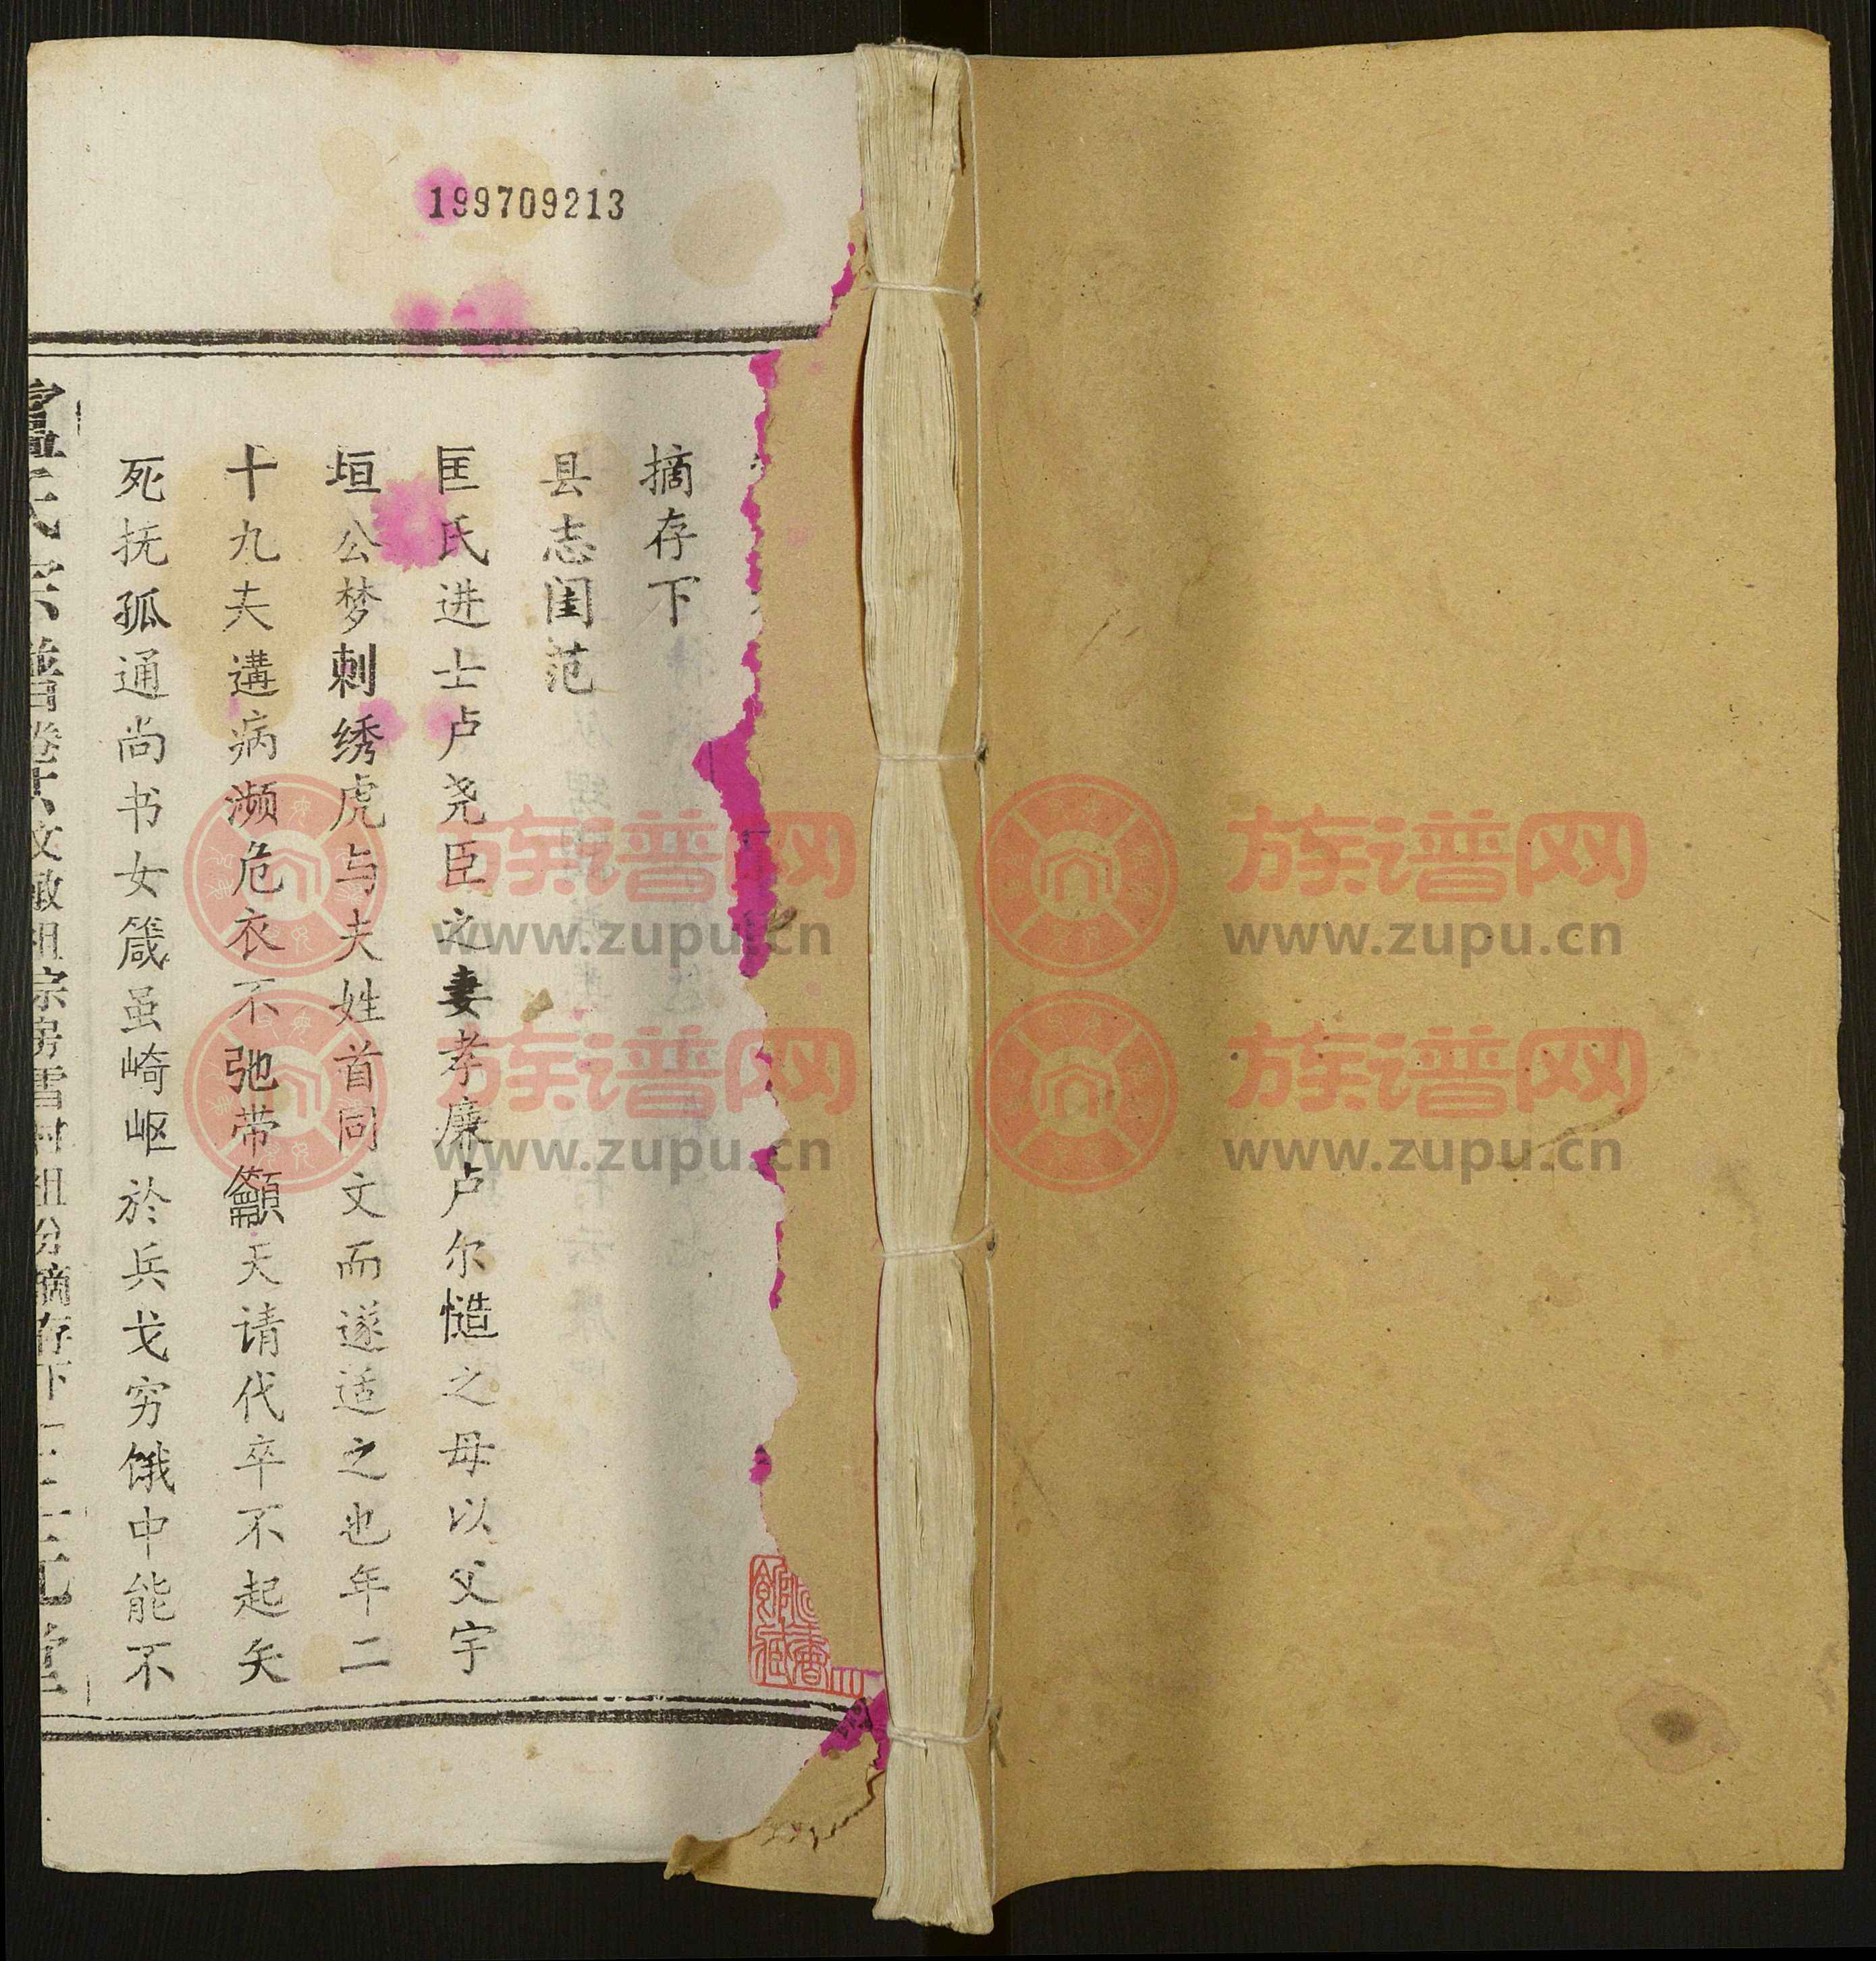 199709213
摘存下
县志闺范
匡氏进士卢尧臣之妻孝廉卢尔慥之母以父宇
垣公梦刺绣虎与夫姓首同文而遂适之也年二
十九夫遘病濒危衣不弛带籲天请代卒不起矢
死抚孤通尚书女箴虽崎岖於兵戈穷饿中能不
卢氏宗谱卷六文敏祖宗房雪村祖分摘存下一三元堂
族谱网
www.zupu.cn
族谱网
www.zupu.cn
族谱网
www.zupu.cn
族谱网
www.zupu.cn